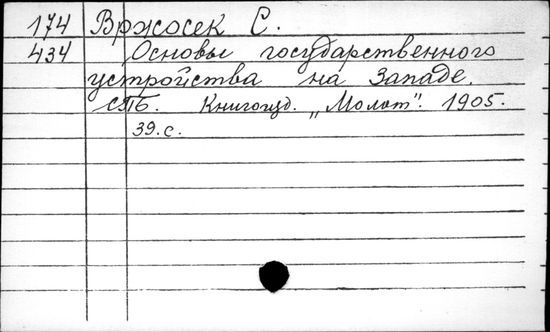 174 Вржосек С.
434 Основы государственного
устройства на Западе.
СПБ. Книгоизд. „Молот". 1905.
39.с.